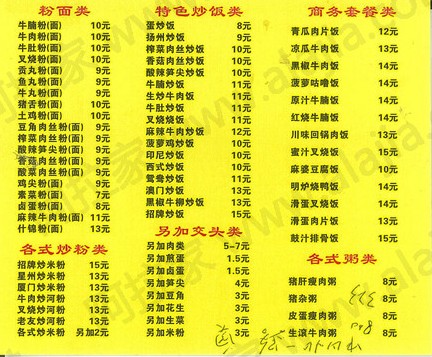 粉面类
牛腩粉(面) 10元
牛肉粉(面) 10元
牛肚粉(面) 10元
叉烧粉(面) 10元
贡丸粉(面) 9元
鱼丸粉(面) 9元
牛丸粉(面) 9元
猪舌粉(面) 10元
土鸡粉(面) 10元
豆角肉丝粉(面) 9元
榨菜肉丝粉(面) 9元
酸辣笋尖粉(面) 9元
香菇肉丝粉(面) 9元
酸菜肉丝粉(面) 9元
鸡尖粉(面) 9元
素菜粉(面) 7元
卤蛋粉(面) 8元
麻辣牛肉粉(面) 11元
什锦粉(面) 13元
各式炒粉类
招牌炒米粉 15元
星州炒米粉 13元
厦门炒米粉 13元
牛肉炒河粉 13元
叉烧炒河粉 13元
老友炒河粉 13元
各式炒米粉 另加2元
特色炒饭类
蛋炒饭 8元
扬州炒饭 9元
榨菜肉丝炒饭 10元
香菇肉丝炒饭 10元
酸辣笋尖炒饭 10元
牛腩炒饭 11元
生炒牛肉饭 11元
牛肚炒饭 11元
叉烧炒饭 11元
麻辣牛肉炒饭 12元
菠萝鸡炒饭 10元
印尼炒饭 10元
西式炒饭 10元
鸳鸯炒饭 11元
澳门炒饭 13元
黑椒牛柳炒饭 13元
招牌炒饭 15元
另加交头类
另加肉类 5-7元
另加煎蛋 1.5元
另加卤蛋 1.5元
另加笋尖 4元
另加豆角 3元
另加花生 3元
另加生菜 3元
另加米粉 3元
商务套餐类
青瓜肉片饭 12元
凉瓜牛肉饭 13元
黑椒牛肉饭 14元
菠萝咕噜饭 14元
原汁牛腩饭 14元
红烧牛腩饭 14元
川味回锅肉饭 13元
蜜汁叉烧饭 15元
麻婆豆腐饭 10元
明炉烧鸭饭 14元
滑蛋叉烧饭 14元
滑蛋肉片饭 13元
豉汁排骨饭 15元
各式粥类
猪肝瘦肉粥 8元
猪杂粥 8元
皮蛋瘦肉粥 8元
生滚牛肉粥 8元